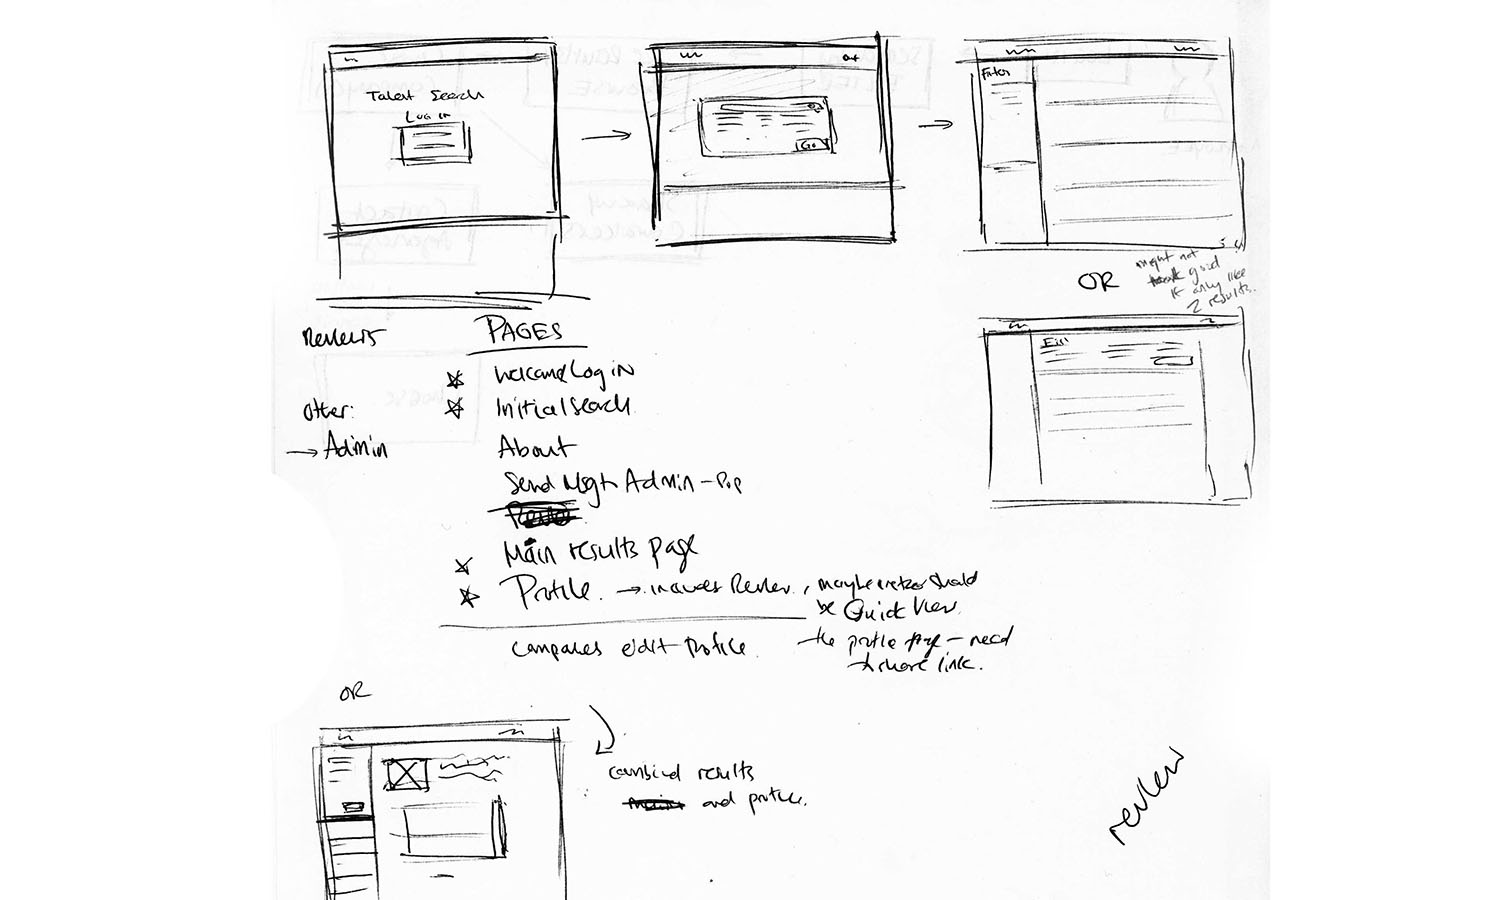 Talent Search
Log in
Go
Filter
OR
might not
good
if only like
2 results.
Reviews
PAGES
Welcome/Log in
Initial Search
Other:
→ Admin
About
Send Msg t Admin - Pop
Main results page
Profile. → includes Review, maybe
should
be Quick View.
the profile page - need
to share link.
edit Profile
OR
combined results
and profile.
review